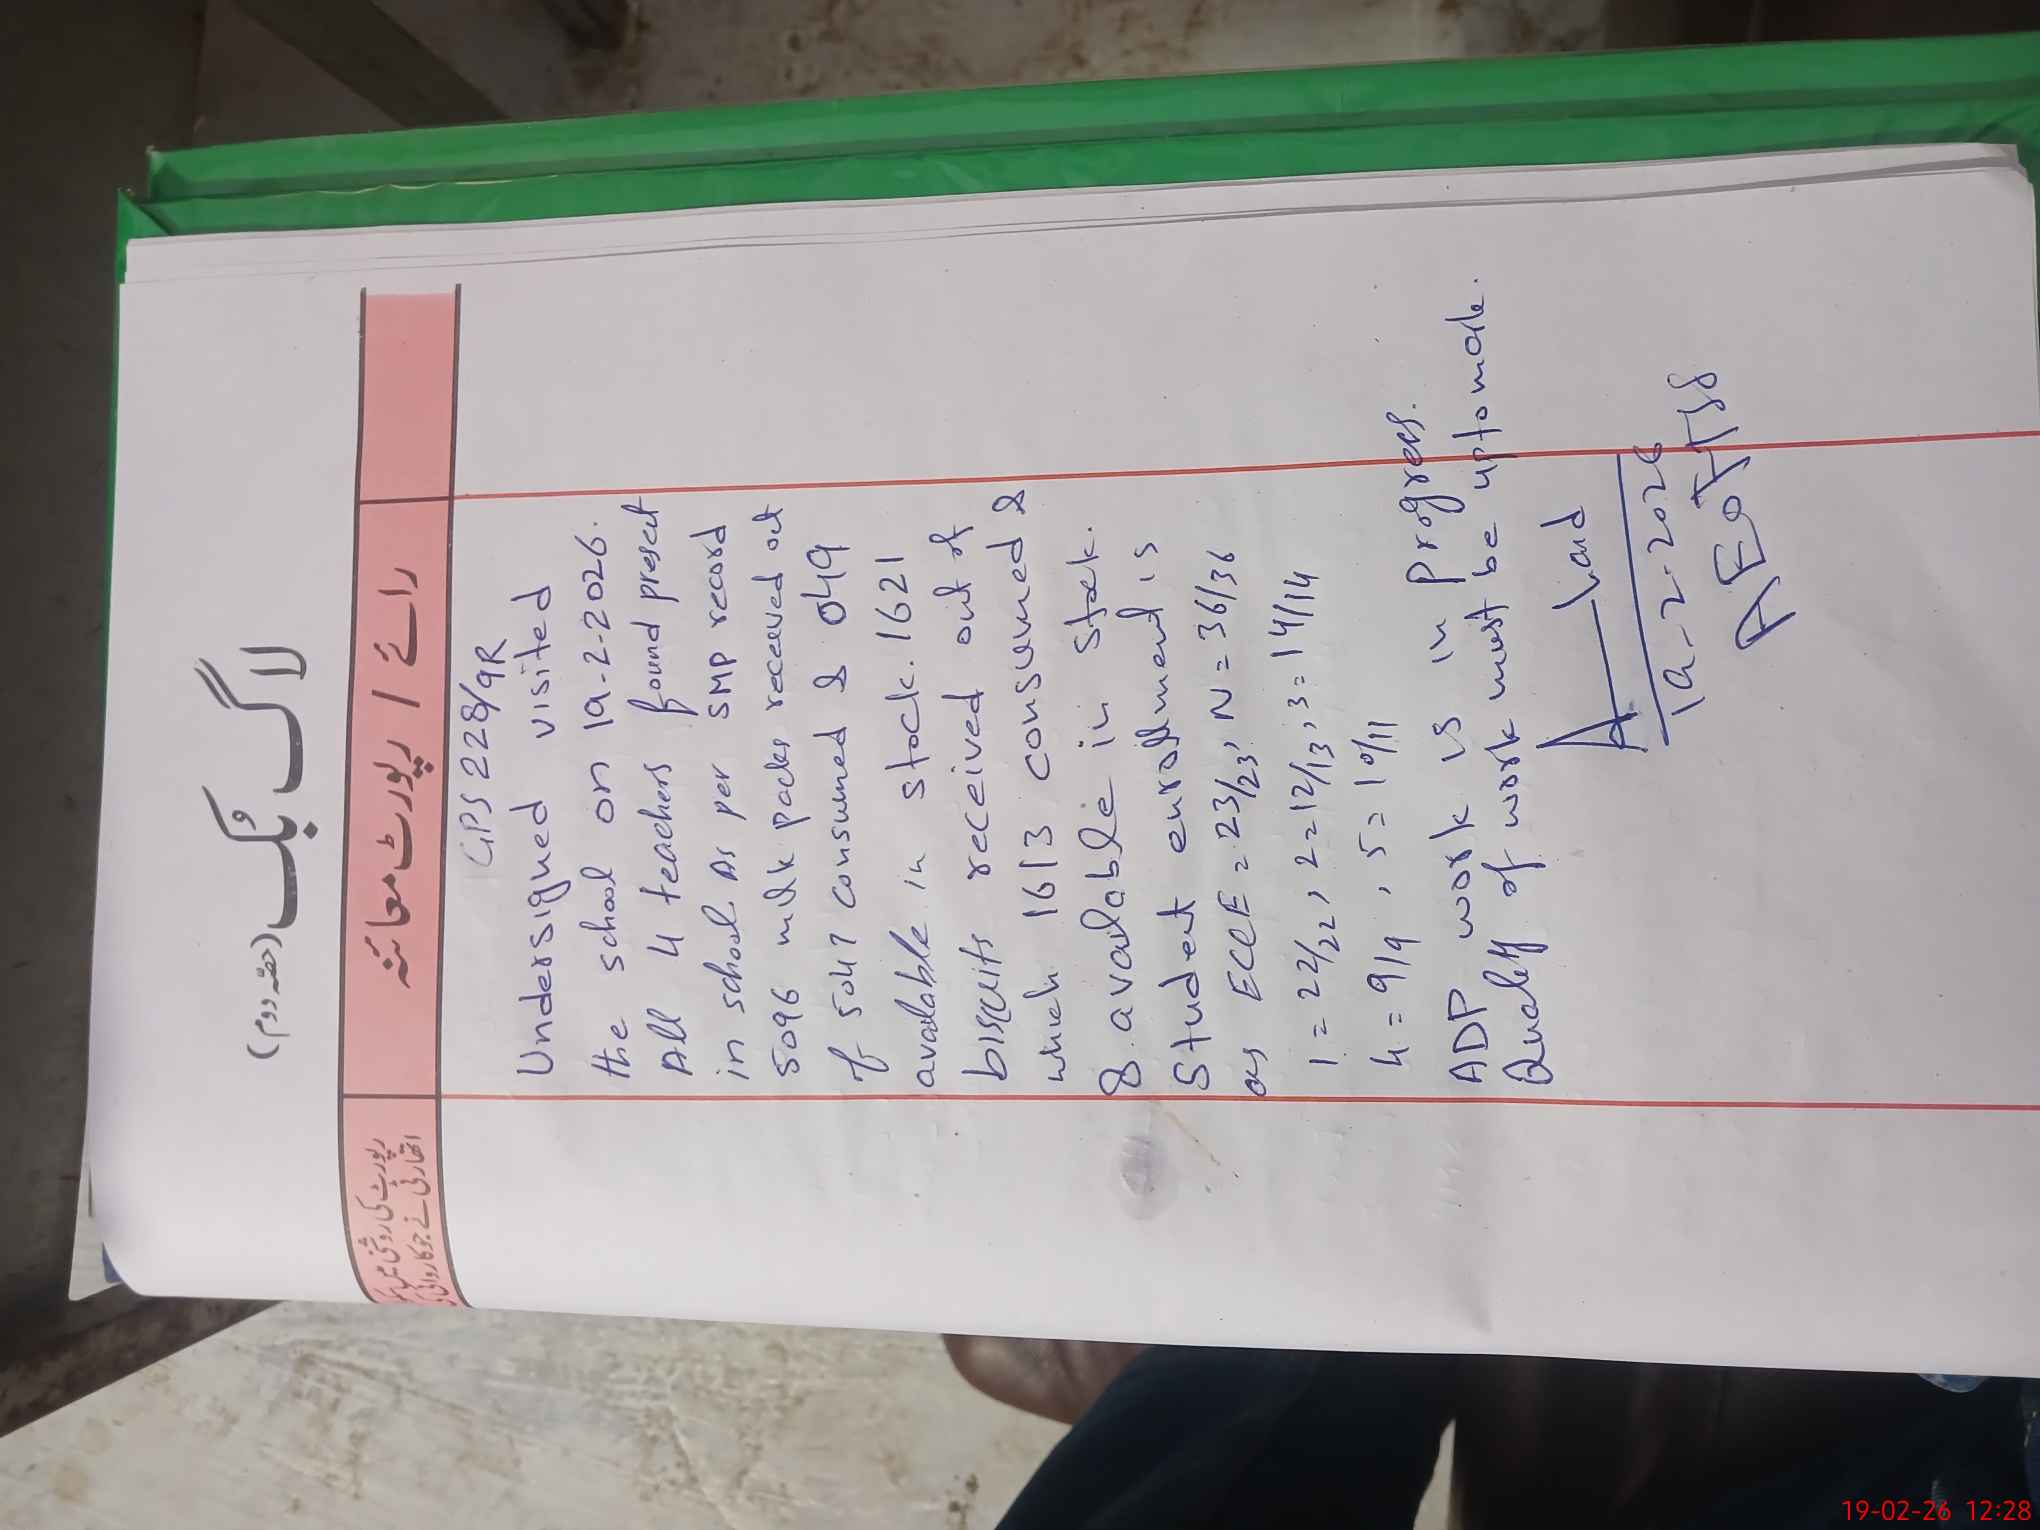 لاگ بک (حصّہ دوم)
رائے / رپورٹ معائنہ
رپورٹ کی روشنی میں
اتھارٹی نے جو کاروائی کی
GPS 228/9R
Undersigned visited
the school on 19-2-2026.
All 4 teachers found present
in school. As per SMP record
5096 milk packs received out
of 5047 consumed & 049
available in stock. 1621
biscuits received out of
which 1613 consumed &
8 available in stock.
Student enrollment is
as ECCE = 23/23, N = 36/36
1 = 22/22, 2 = 12/13, 3 = 14/14
4 = 9/9, 5 = 10/11
ADP work is in Progress.
Quality of work must be upto mark.
19-2-2026
AEO
19-02-26 12:28